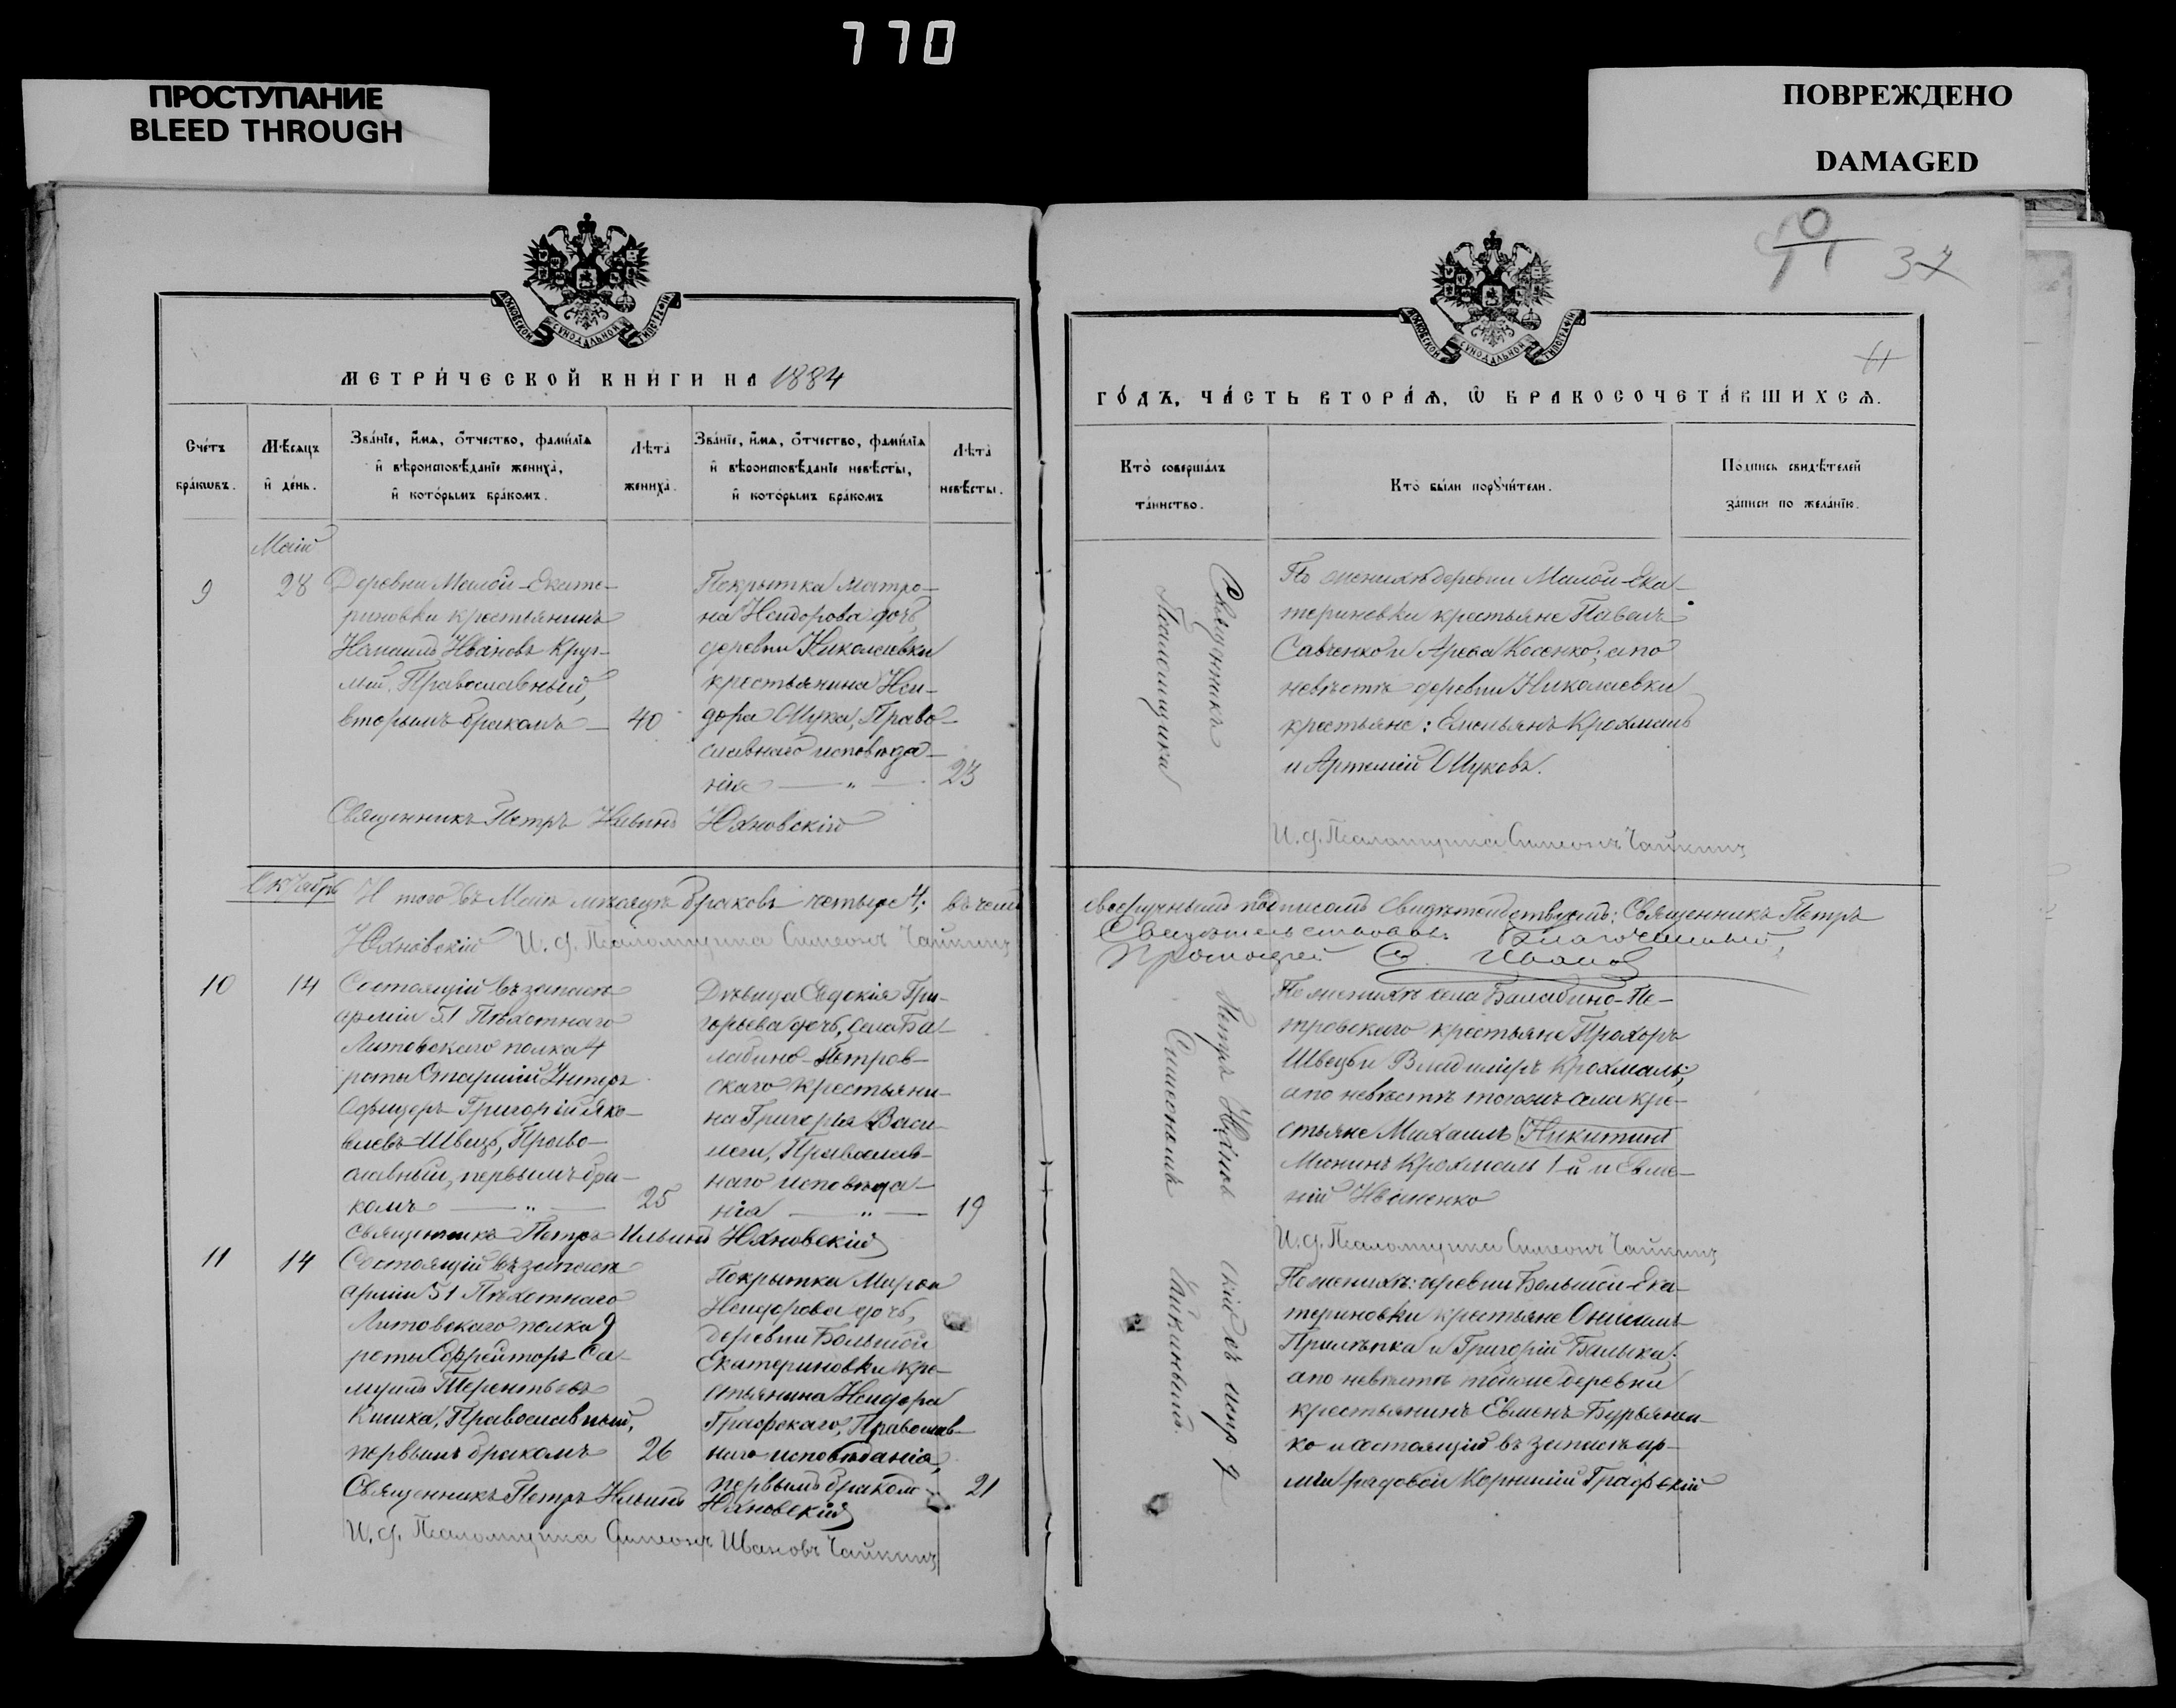 770
ПРОСТУПАНИЕ
BLEED THROUGH
ПОВРЕЖДЕНО
DAMAGED
37
11
МЕТРИЧЕСКОЙ КНИГИ НА 1884
Счетъ
браковъ.
Мѣсяцъ
и день.
Званіе, имя, отчество, фамилія
и вѣроисповѣданіе жениха,
и которымъ бракомъ.
Лѣта
жениха.
Званіе, имя, отчество, фамилія
и вѣроисповѣданіе невѣсты,
и которымъ бракомъ
Лѣта
невѣсты.
Маій
9
28
Деревни Малой-Екате-
риновки крестьянинъ
Ивановъ Круг-
лий, Православный,
вторымъ бракомъ —
40
Покрытка Матро-
на Исидорова дочь,
деревни Николаевки
крестьянина Иси-
дора Щука, Право-
славнаго исповѣда-
нія — „ —
23
Священникъ Петръ Ильинъ Юхновскій
Октябрь
И того въ Маѣ мѣсяцѣ браковъ четыре 4; въ чемъ
Юхновскій И. д. Псаломщика Симеонъ Чайкинъ
10
14
Состоящій въ запасѣ
арміи 51 Пѣхотнаго
Литовскаго полка 4
роты Старшій Унтеръ
Офицеръ Григорій Яко-
влевъ Швецъ, Право-
славный, первымъ бра-
комъ — „ —
25
Дѣвица Евдокія Гри-
горьева дочь, села Ба-
лабино-Петров-
скаго крестьяни-
на Григорія Васи-
, Православ-
наго исповѣда-
нія — „ —
19
Священникъ Петръ Ильинъ Юхновскій
11
14
Состоящій въ запасѣ
арміи 51 Пѣхотнаго
Литовскаго полка 9
роты Ефрейторъ Са-
муилъ Терентьевъ
Кишка, Православный,
первымъ бракомъ
26
Покрытка Марѳа
Исидорова дочь,
деревни Большой
Екатериновки кре-
стьянина Исидора
Графскаго, Православ-
наго исповѣданія,
первымъ бракомъ
21
Священникъ Петръ Ильинъ Юхновскій
И. д. Псаломщика Симеонъ Ивановъ Чайкинъ
ГОДЪ, ЧАСТЬ ВТОРАЯ, Ѡ БРАКОСОЧЕТАВШИХСЯ.
Кто совершалъ
таинство.
Кто были поручители.
Подпись свидѣтелей
записи по желанію.
Священникъ
Псаломщика
По женихѣ деревни Малой-Ека-
териновки крестьяне Павелъ
Савченко и Косенко; а по
невѣстѣ деревни Николаевки
крестьяне: Емельянъ Крохмаль
и Артемій Щуковъ.
И. д. Псаломщика Симеонъ Чайкинъ
своеручнымъ подписомъ свидѣтельствуемъ: Священникъ Петръ
Свидѣтельствовалъ Благочинный,
Протоіерей Ивановъ
Петръ
Симеономъ
Чайкинымъ.
По женихѣ села Балабино-Пе-
тровскаго крестьяне Прохоръ
Швецъ и Владиміръ Крохмаль;
а по невѣстѣ тогожъ села кре-
стьяне Михаилъ Никитинъ
Крохмаль 1-й и Евме-
ній Иваненко
И. д. Псаломщика Симеонъ Чайкинъ
По женихѣ: деревни Большой-Ека-
териновки крестьяне Онисимъ
Прилѣпка и Григорій Балыка;
а по невѣстѣ тойже деревни
крестьянинъ Евменъ Бурьянен-
ко и состоящій въ запасѣ ар-
міи рядовой Корнилій Графскій